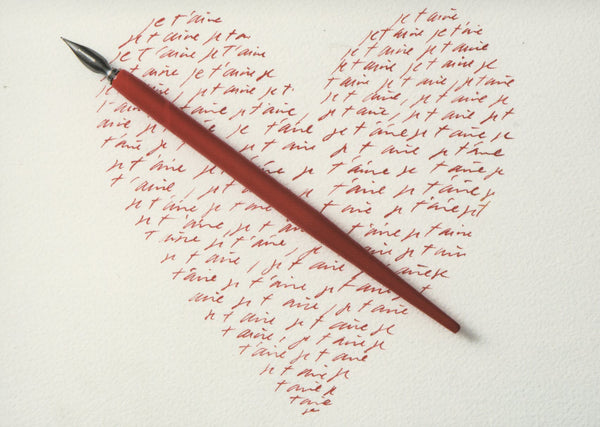 je t'aime je t'aime
je t'aime je t'a je t'aime je t'aime
je t'aime je t'aime je t'aime je t'aime
t'aime je t'aime je je t'aime je t'aime je
je t'aime je t' t'aime je t'aime, je t'aime
t'aime je t'aime je t'aime, je t'aime je
t'aime je t'aime je t'aime je t'aime je
je t'aime je t'aime je t'aime je t'aime je
t'aime je t'aime je t'aime je t'aime
je t'aime je t'aime je t'aime je
t'aime je t'aime je t'aime je
je t'aime je t'aime je t'aime je t
je t'aime je t'aime je t'aime
t'aime je t'aime, je t'aime je t'aim
je t'aime, je t'aime, je t'aime je
t'aime je t'aime je t'aime je
aime je t'aime, je t'aime
je t'aime je t'aime je
t'aime, je t'aime je
t'aime je t'aime
je t'aime je
t'aime je
t'aime
je